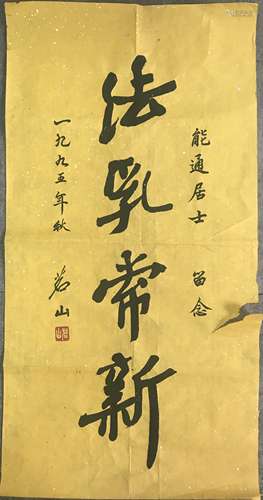 能通居士 留念
法乳常新
一九九五年秋
茗山